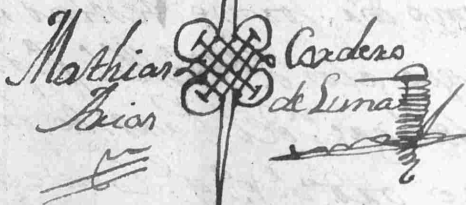 Mathias Cordero
Arias de Luna